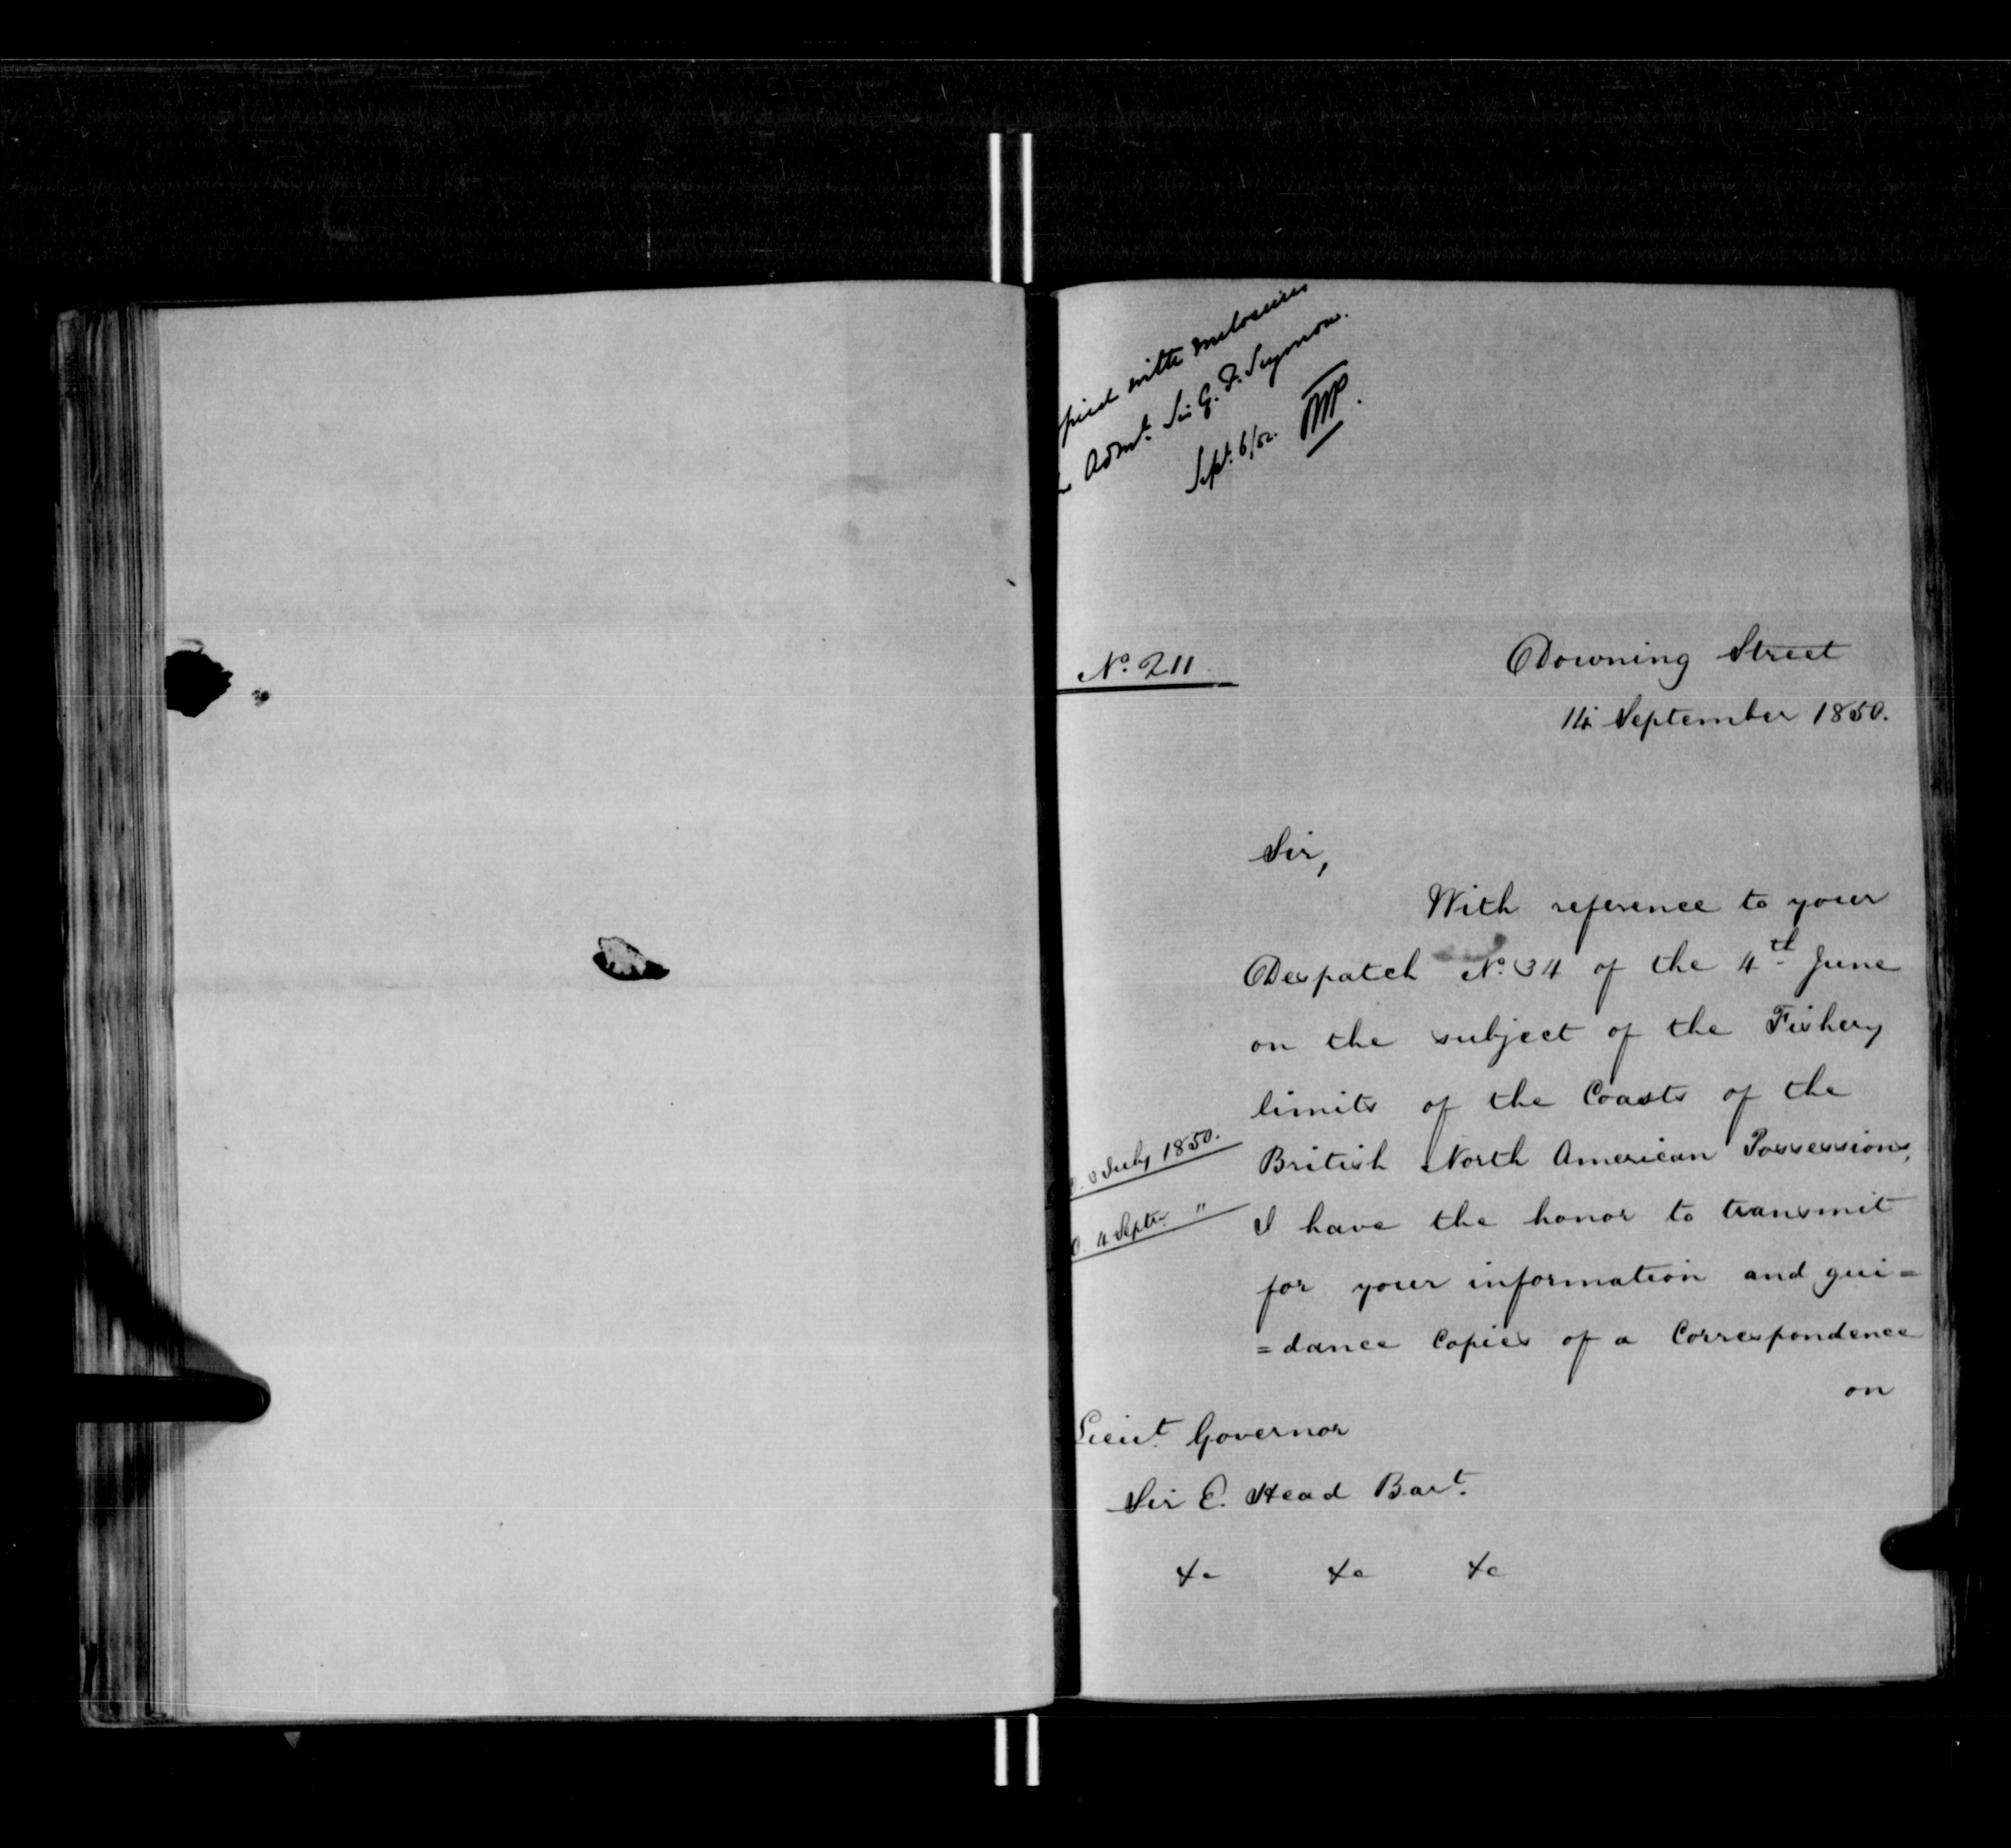 pied with enclosures
Adml. Sir G. F. Seymour.
Sept. 6/52.
No. 211
Downing Street
14 September 1850.
Sir,
With reference to your
Despatch No. 34 of the 4th June
on the subject of the Fishery
limits of the Coasts of the
British North American Possessions,
July 1850.
4 Septr. "
I have the honor to transmit
for your information and gui=
=dance Copies of a Correspondence
on
Lieut. Governor
Sir E. Head Bart.
&c &c &c